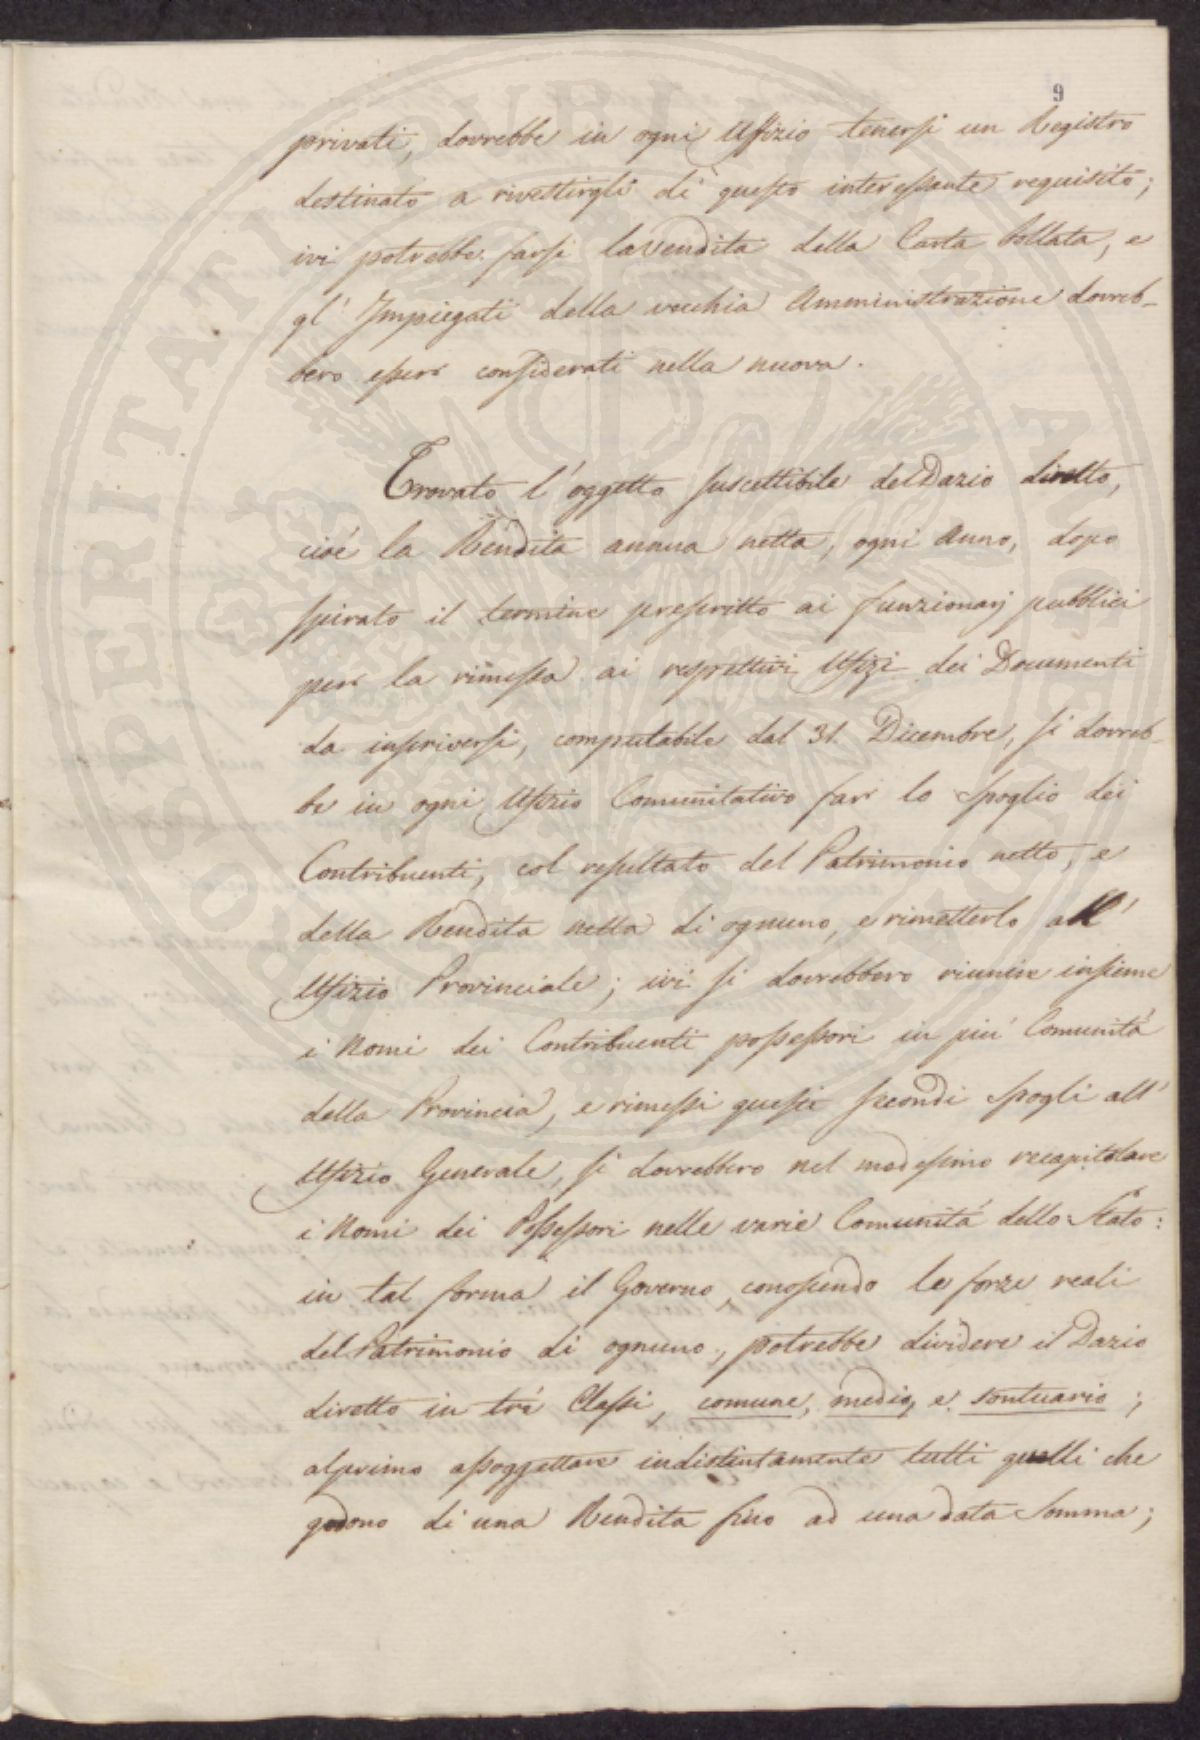 9
privati, dovrebbe in ogni Uffizio tenersi un Registro
destinato a rivestirgli di questo interessante requisito;
ivi potrebbe farsi la vendita della Carta bollata, e
gl' Impiegati della vecchia Amministrazione dovreb-
bero esser considerati nella nuova.
Trovato l'oggetto suscettibile del Dazio diretto,
cioé la Rendita annua netta, ogni Anno, dopo
spirato il termine prescritto ai funzionarj pubblici
per la rimessa ai respettivi Ufizi dei Documenti
da inscriversi, computabile dal 31. Dicembre, si dovreb-
be in ogni Ufizio Comunitativo far lo spoglio dei
Contribuenti, col resultato del Patrimonio netto, e
della Rendita netta di ognuno, e rimetterlo all'
Ufizio Provinciale; ivi si dovrebbero riunire insieme
i Nomi dei Contribuenti possessori in piú Comunitá
della Provincia, e rimessi questi secondi spogli all'
Ufizio Generale, si dovrebbero nel medesimo recapitolare
i Nomi dei Possessori nelle varie Comunitá dello Stato:
in tal forma il Governo, conoscendo le forze reali
del Patrimonio di ognuno, potrebbe dividere il Dazio
diretto in tré Classi, comune, medio, e sontuario;
al primo assoggettare indistintamente tutti quelli che
godono di una Rendita fino ad una data somma;
PROSPERITATI PUBLICAE AUGENDAE